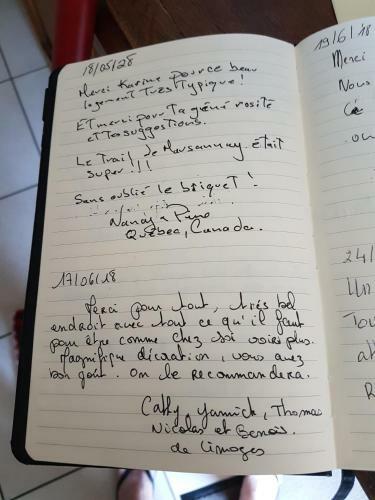 18/05/28
Merci Karine pour ce beau
logement Très Typique!
Et merci pour ta générosité
et tes suggestions.
Le Trail de Marsannay était
super!!!
Sans oublié le briquet!
Nancy &
Québec, Canada.
17/06/18
Merci pour tout, très bel
endroit avec tout ce qu'il faut
pour être comme chez soi voire plus.
Magnifique décoration, vous avez
bon goût. On le recommandera.
Cathy, Yannick, Thomas
Nicolas et Benoit.
de Limoges
19/6/18
Merci
Nous
24/
Un
Tou